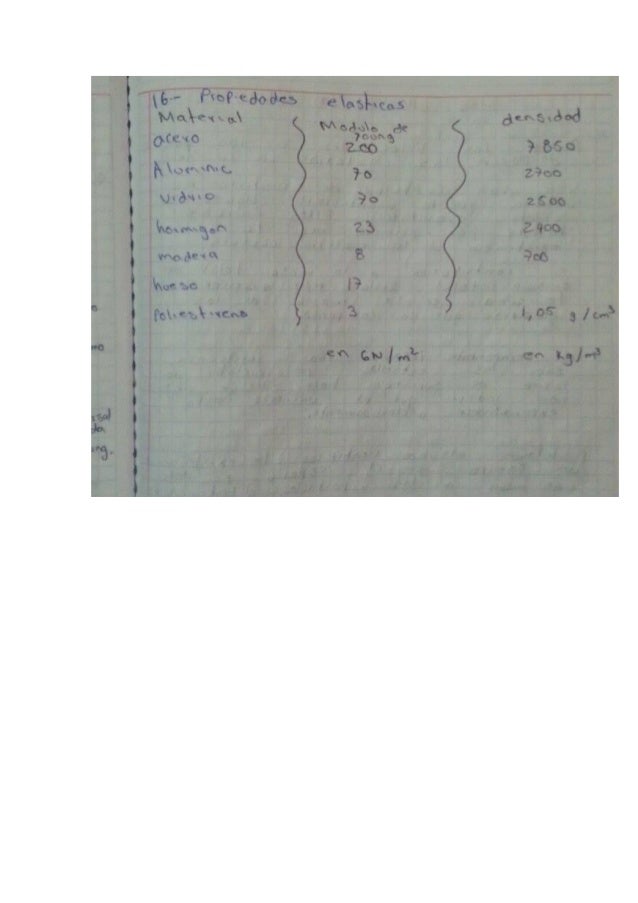 16.- Propiedades elasticas
Material Modulo de young densidad
acero 200 7850
Aluminio 70 2700
vidrio 70 2500
hormigon 23 2400
madera 8 700
hueso 17
Poliestireno 3 1,05 g/cm³
en GN/m² en kg/m³